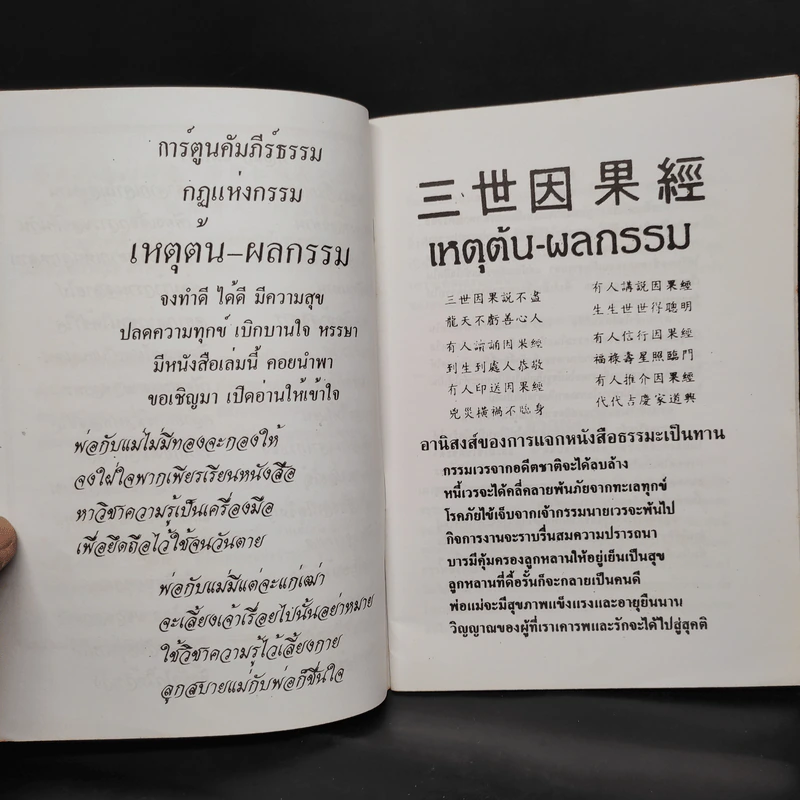 การ์ตูนคัมภีร์ธรรม
กฎแห่งกรรม
เหตุต้น-ผลกรรม
จงทำดี ได้ดี มีความสุข
ปลดความทุกข์ เบิกบานใจ หรรษา
มีหนังสือเล่มนี้ คอยนำพา
ขอเชิญมา เปิดอ่านให้เข้าใจ
พ่อกับแม่ไม่มีทองจะกองให้
จงใฝ่ใจพากเพียรเรียนหนังสือ
หาวิชาความรู้เป็นเครื่องมือ
เพื่อยึดถือไว้ใช้จนวันตาย
พ่อกับแม่มีแต่จะแก่เฒ่า
จะเลี้ยงเจ้าเรื่อยไปนั้นอย่าหมาย
ใช้วิชาความรู้ไว้เลี้ยงกาย
ลูกสบายแม่กับพ่อก็ชื่นใจ
三世因果經
เหตุต้น-ผลกรรม
三世因果說不盡
龍天不虧善心人
有人讀誦因果經
到生到處人恭敬
有人印送因果經
兇災橫禍不臨身
有人講說因果經
生生世世得聰明
有人信行因果經
福祿壽星照臨門
有人推介因果經
代代吉慶家道興
อานิสงส์ของการแจกหนังสือธรรมะเป็นทาน
กรรมเวรจากอดีตชาติจะได้ลบล้าง
หนี้เวรจะได้คลี่คลายพ้นภัยจากทะเลทุกข์
โรคภัยไข้เจ็บจากเจ้ากรรมนายเวรจะพ้นไป
กิจการงานจะราบรื่นสมความปรารถนา
บารมีคุ้มครองลูกหลานให้อยู่เย็นเป็นสุข
ลูกหลานที่ดื้อรั้นก็จะกลายเป็นคนดี
พ่อแม่จะมีสุขภาพแข็งแรงและอายุยืนนาน
วิญญาณของผู้ที่เราเคารพและรักจะได้ไปสู่สุคติ